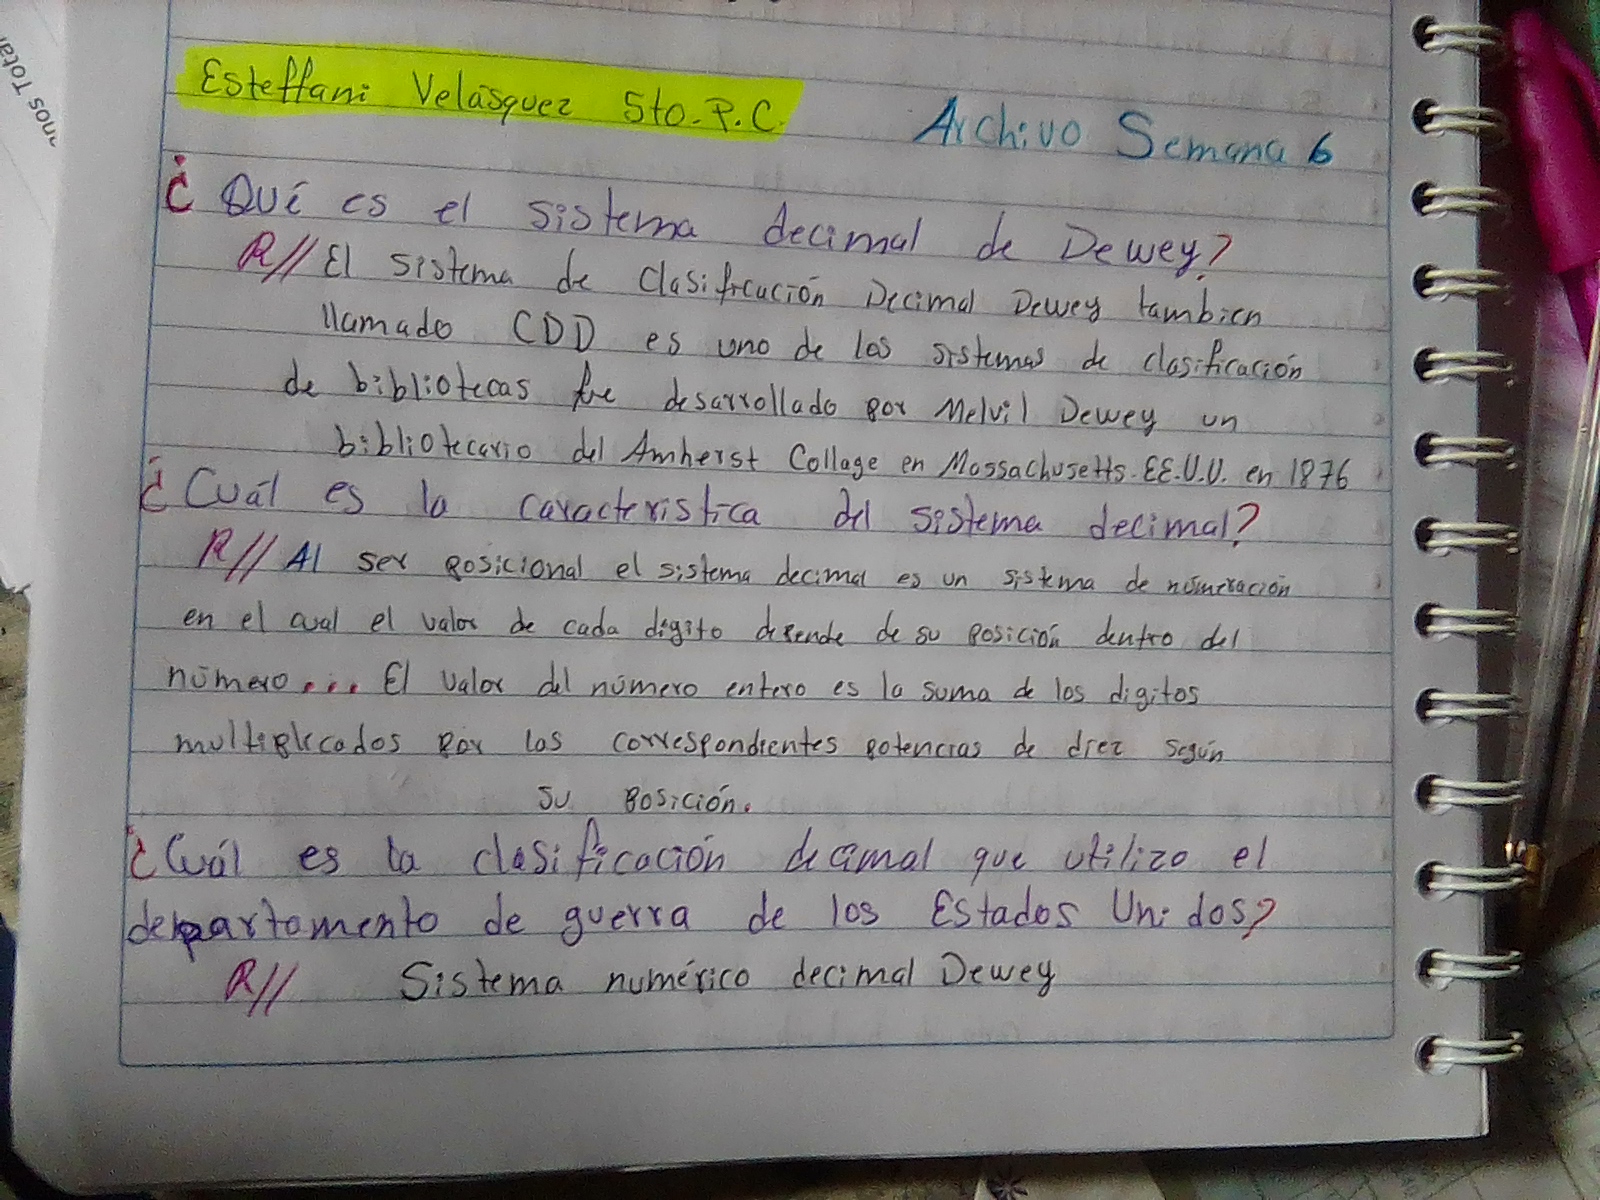 nos Total
Esteffani Velásquez 5to. P.C.
Archivo Semana 6
¿Qué es el sistema decimal de Dewey?
R// El sistema de Clasificación Decimal Dewey tambien
llamado CDD es uno de los sistemas de clasificación
de bibliotecas fue desarrollado por Melvil Dewey un
bibliotecario del Amherst Collage en Massachusetts. EE.U.U. en 1876
¿Cuál es la caracteristica del sistema decimal?
R// Al ser posicional el sistema decimal es un sistema de númeración
en el cual el valor de cada dígito depende de su posición dentro del
número... El valor del número entero es la suma de los digitos
multiplicados por las correspondientes potencias de diez según
su posición.
¿Cuál es la clasificación decimal que utilizo el
departamento de guerra de los Estados Unidos?
R// Sistema numérico decimal Dewey